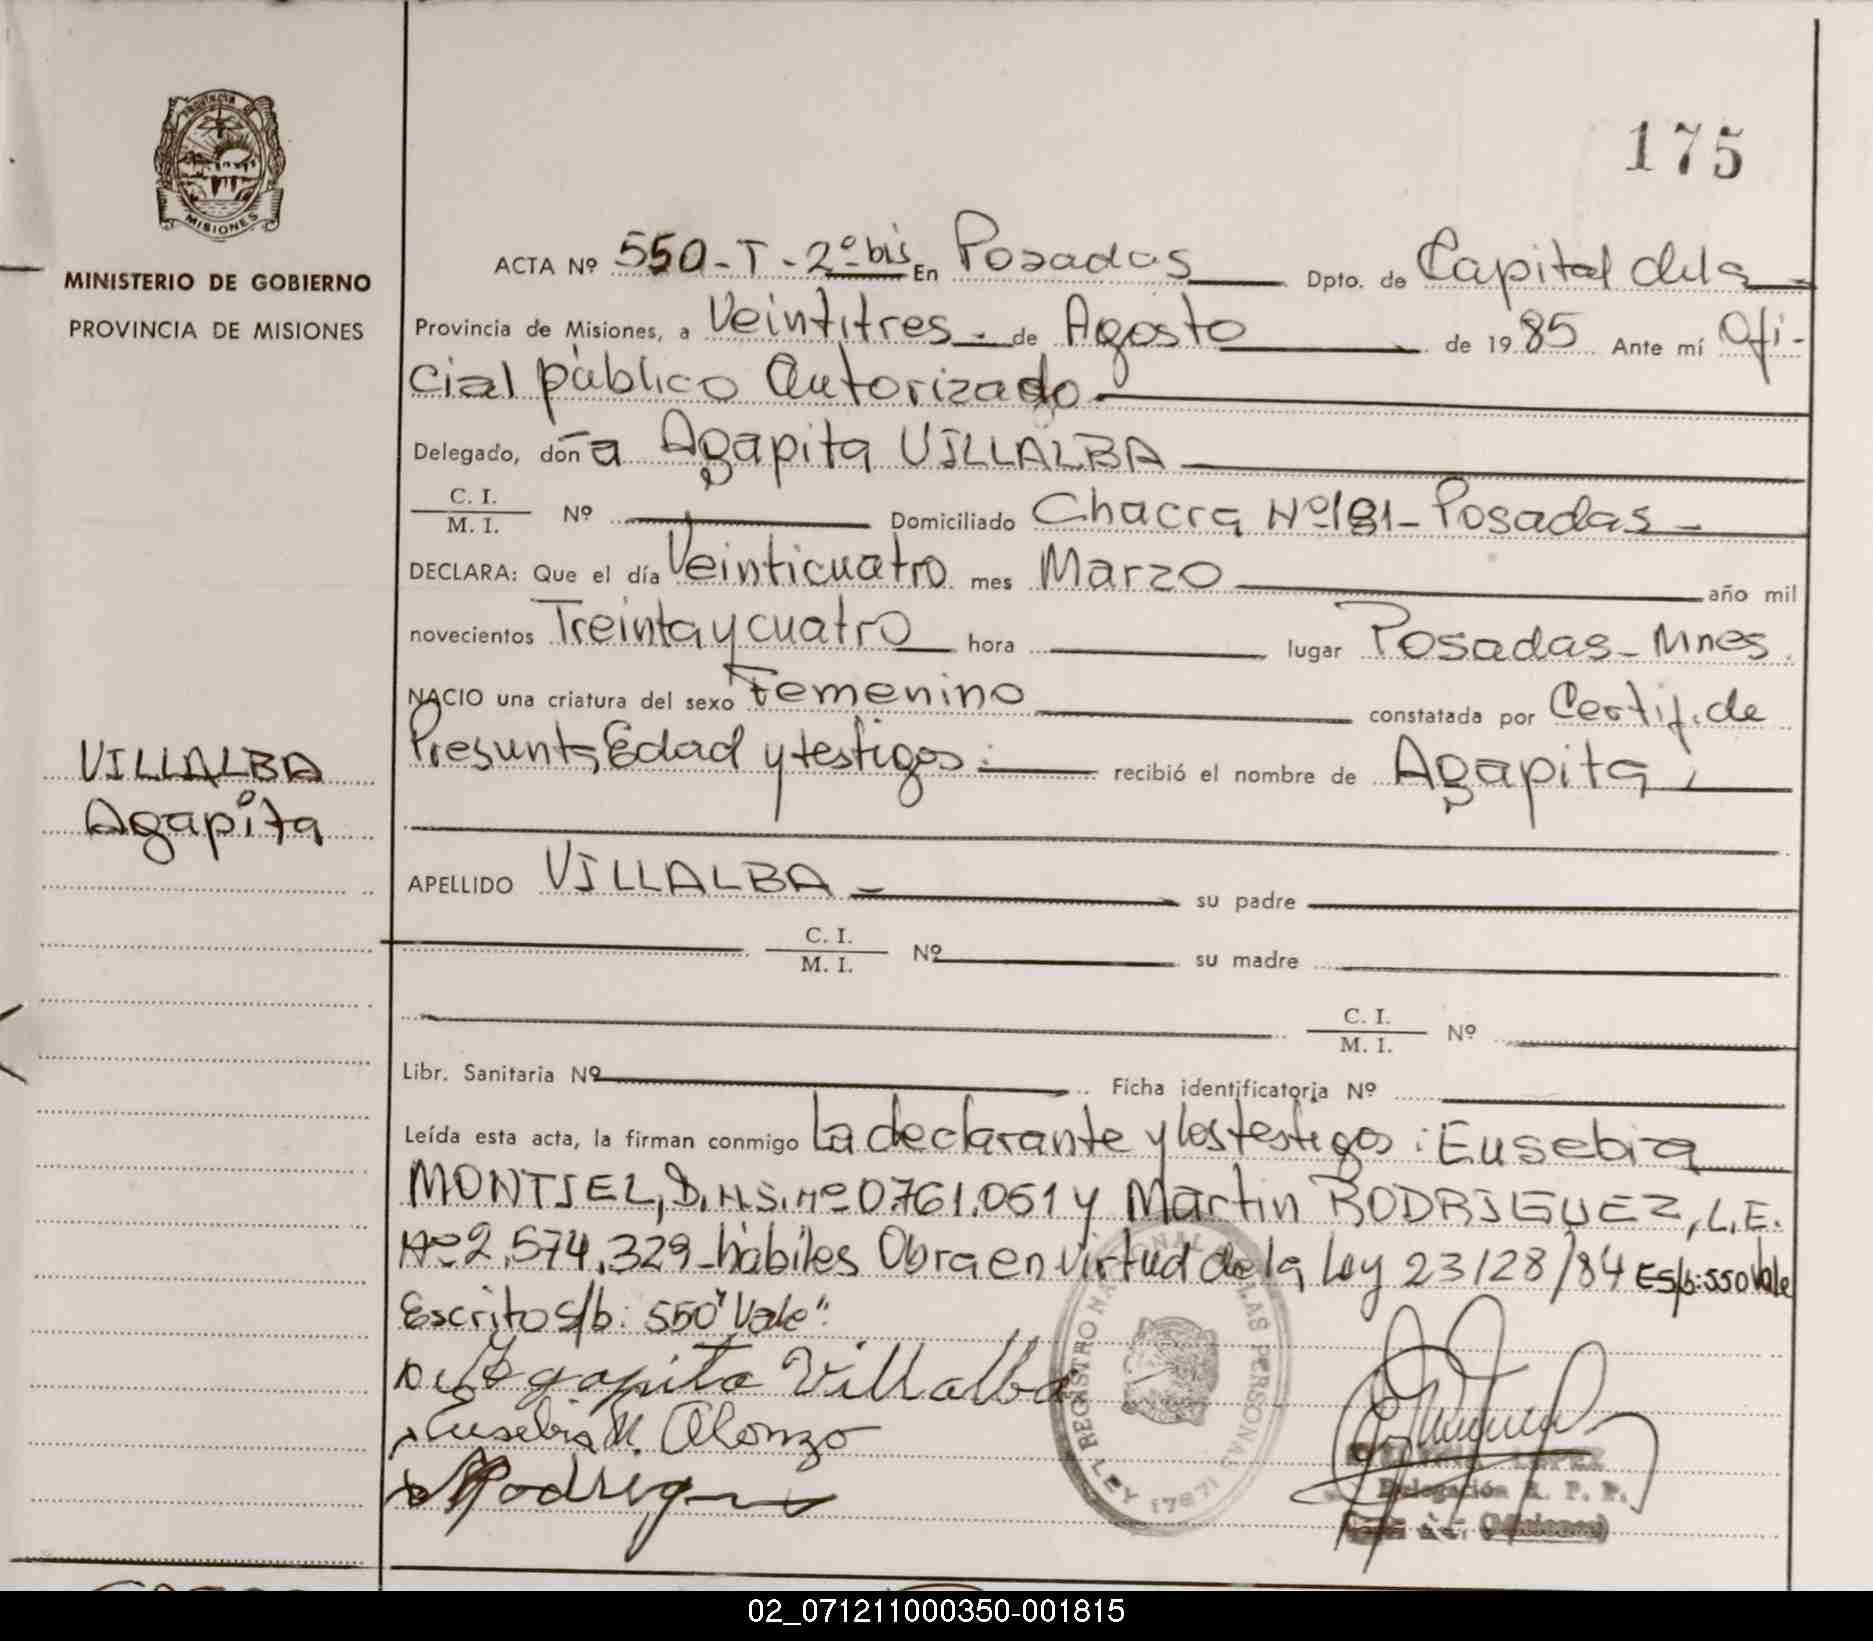 175
MINISTERIO DE GOBIERNO
PROVINCIA DE MISIONES
MISIONES
ACTA Nº 550-T-2º bis En Posadas Dpto. de Capital de la
Provincia de Misiones, a Veintitres de Agosto de 1985 Ante mí Ofi-
cial público Autorizado
Delegado, doña Agapita VILLALBA
C. I.
M. I. Nº Domiciliado Chacra Nº 181 - Posadas
DECLARA: Que el día Veinticuatro mes Marzo año mil
novecientos Treinta y cuatro hora lugar Posadas - Mnes
NACIO una criatura del sexo Femenino constatada por Certif. de
Presunta Edad y testigos recibió el nombre de Agapita
VILLALBA
Agapita
APELLIDO VILLALBA su padre
C. I.
M. I. Nº su madre
C. I.
M. I. Nº
Libr. Sanitaria Nº Ficha identificatoria Nº
Leída esta acta, la firman conmigo La declarante y los testigos: Eusebia
MONTIEL, D.N.I. Nº 0.761.051 y Martin RODRIGUEZ, L.E.
Nº 2.574.329 - hábiles Obra en virtud de la Ley 23128/84 Es/b: 550 Vale
Escrito s/b: 550 "Vale"
Agapita Villalba
Eusebia M. Alonzo
LOPEZ
Delegación R. P. P.
(Misiones)
REGISTRO NACIONAL DE LAS PERSONAS LEY 17671
02_071211000350-001815